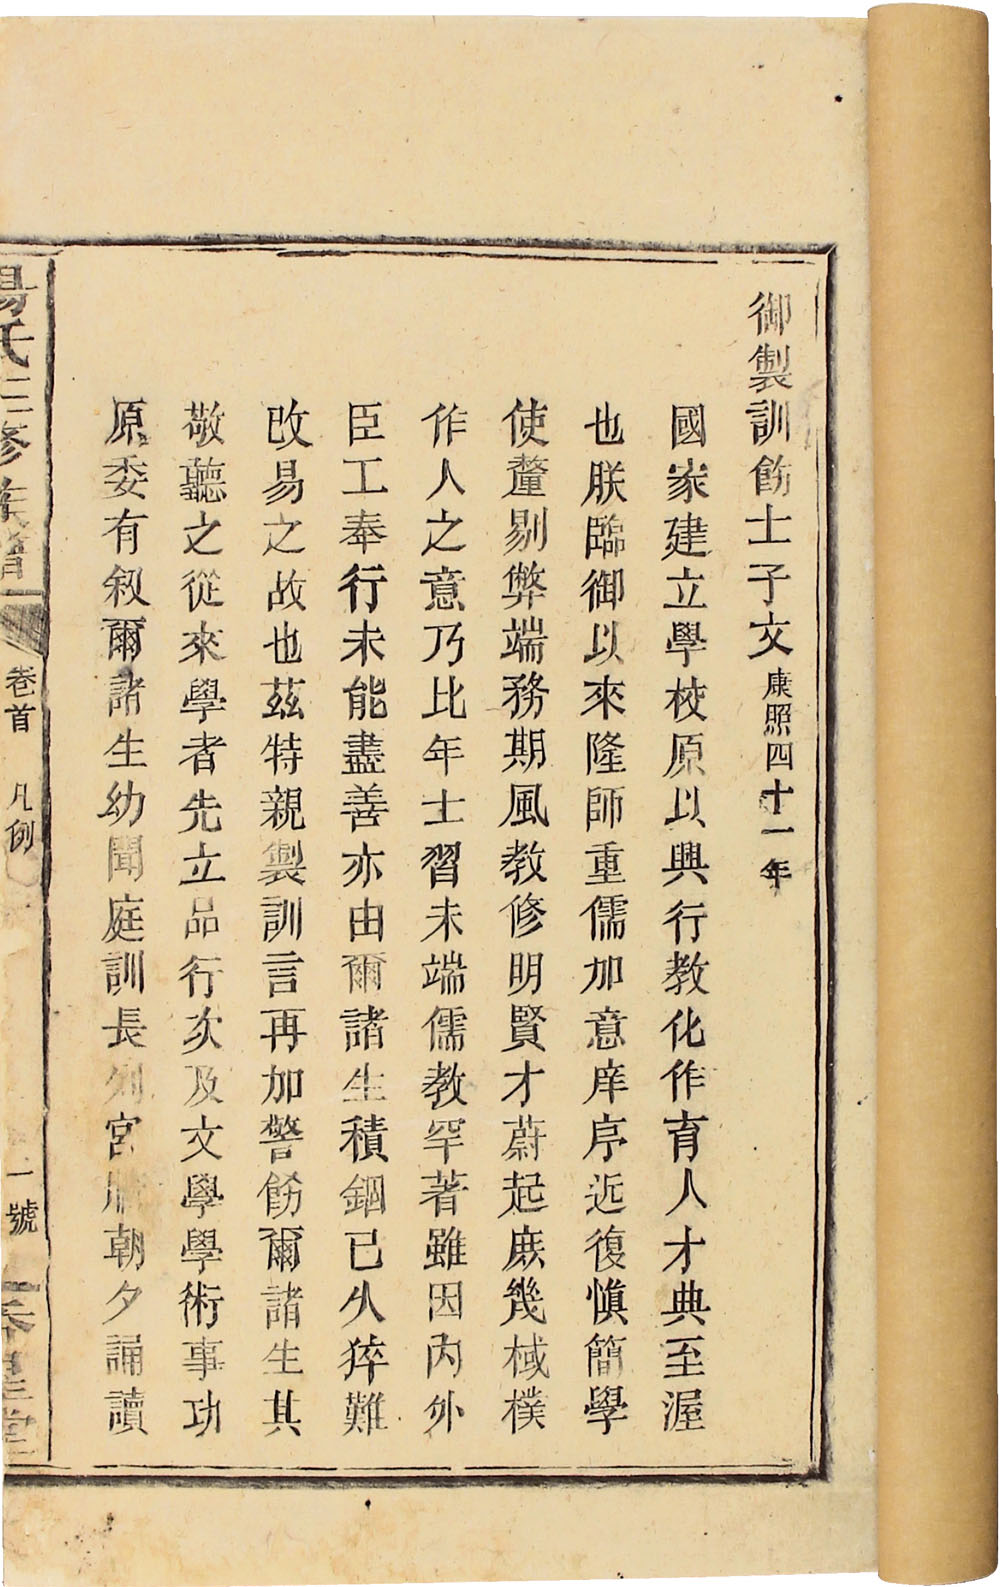 御製訓飭士子文康熙四十一年
國家建立學校原以興行教化作育人才典至渥
也朕臨御以來隆師重儒加意庠序近復愼簡學
使釐剔弊端務期風教修明賢才蔚起庶幾棫樸
作人之意乃比年士習未端儒教罕著雖因內外
臣工奉行未能盡善亦由爾諸生積錮已久猝難
改易之故也茲特親製訓言再加警飭爾諸生其
敬聽之從來學者先立品行次及文學學術事功
原委有叙爾諸生幼聞庭訓長列宮牆朝夕誦讀
楊氏三修族譜
卷首
凡例
一號